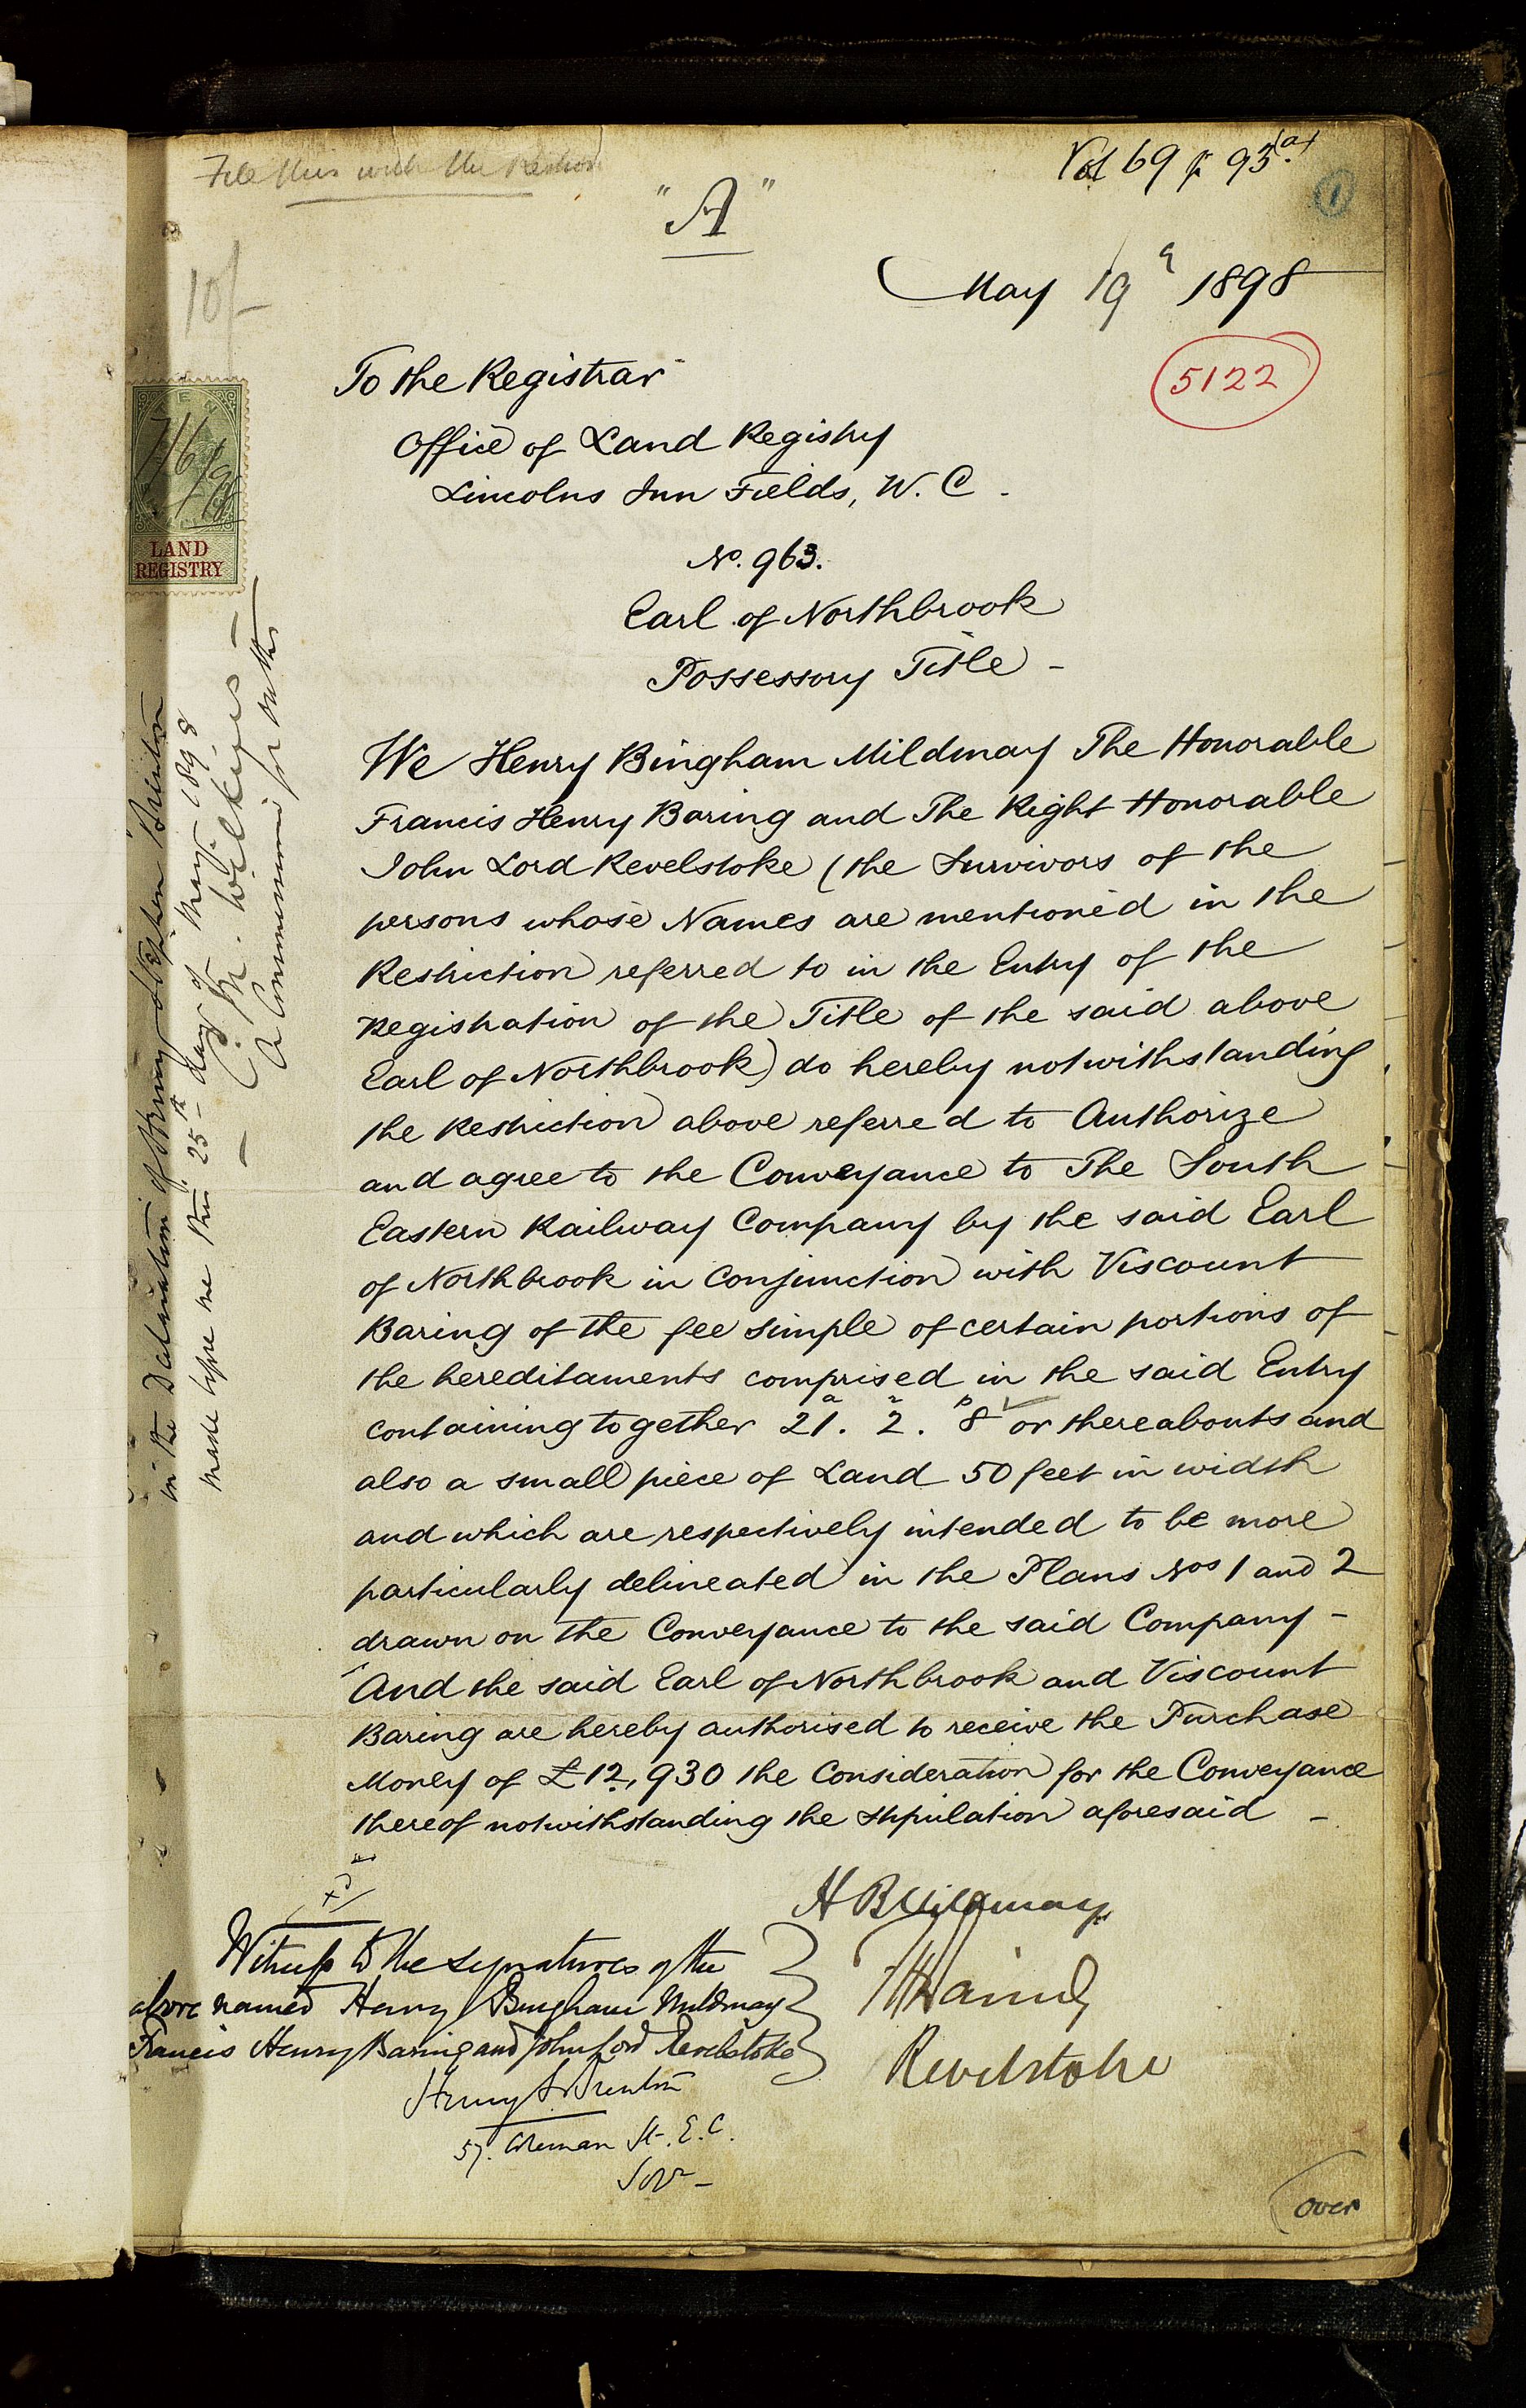 File this with the
Vol 69 p 93(a)
1
"A"
May 19th 1898
10/-
5122
To the Registrar
Office of Land Registry
Lincolns Inn Fields, W. C.
TEN
7/6/98
LAND
REGISTRY
No. 963.
Earl of Northbrook
Possessory Title -
We Henry Bingham Mildmay The Honorable
Francis Henry Baring and The Right Honorable
John Lord Revelstoke (the Survivors of the
persons whose Names are mentioned in the
Restriction referred to in the Entry of the
Registration of the Title of the said above
Earl of Northbrook) do hereby notwithstanding
the Restriction above referred to Authorize
and agree to the Conveyance to The South
Eastern Railway Company by the said Earl
of Northbrook in Conjunction with Viscount
Baring of the fee simple of certain portions of
the hereditaments comprised in the said Entry
containing together 21a. 2r. 8p or thereabouts and
also a small piece of Land 50 feet in width
and which are respectively intended to be more
particularly delineated in the Plans Nos 1 and 2
drawn on the Conveyance to the said Company -
And the said Earl of Northbrook and Viscount
Baring are hereby authorised to receive the Purchase
Money of £12,930 the Consideration for the Conveyance
thereof notwithstanding the stipulation aforesaid -
in the Declaration of Henry Stephen Brunton
made before me this 25th day of May 1898
Wilkins
A Commissioner for Oaths
H B Mildmay
F H Baring
Revelstoke
Witness to the signatures of the
above named Henry Bingham Mildmay
Francis Henry Baring and John Lord Revelstoke
Henry S. Brunton
57. Coleman St. E.C.
Solr -
over